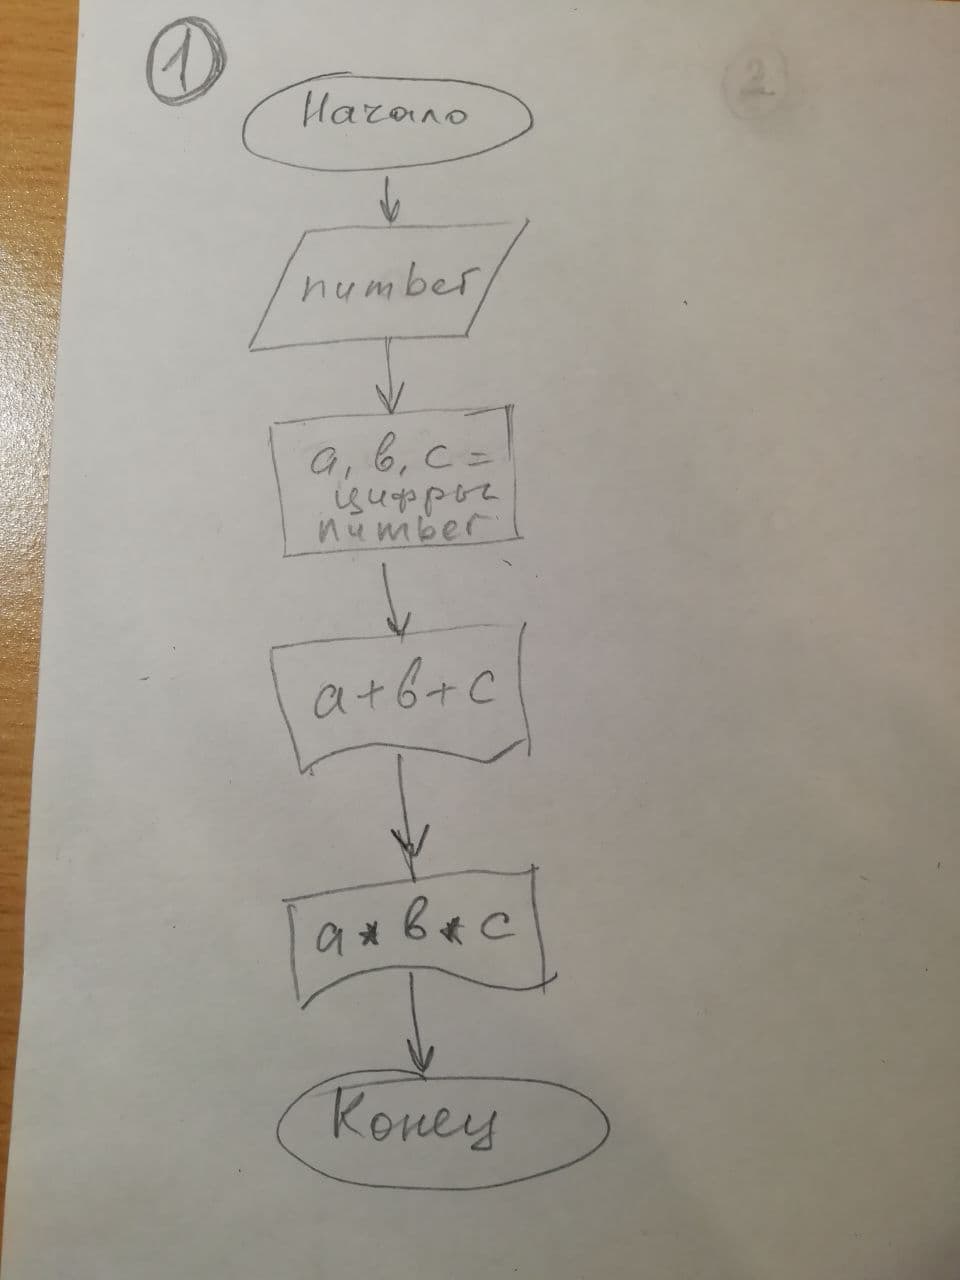 1
2
Начало
number
a, b, c =
цифры
number
a+b+c
a * b * c
Конец